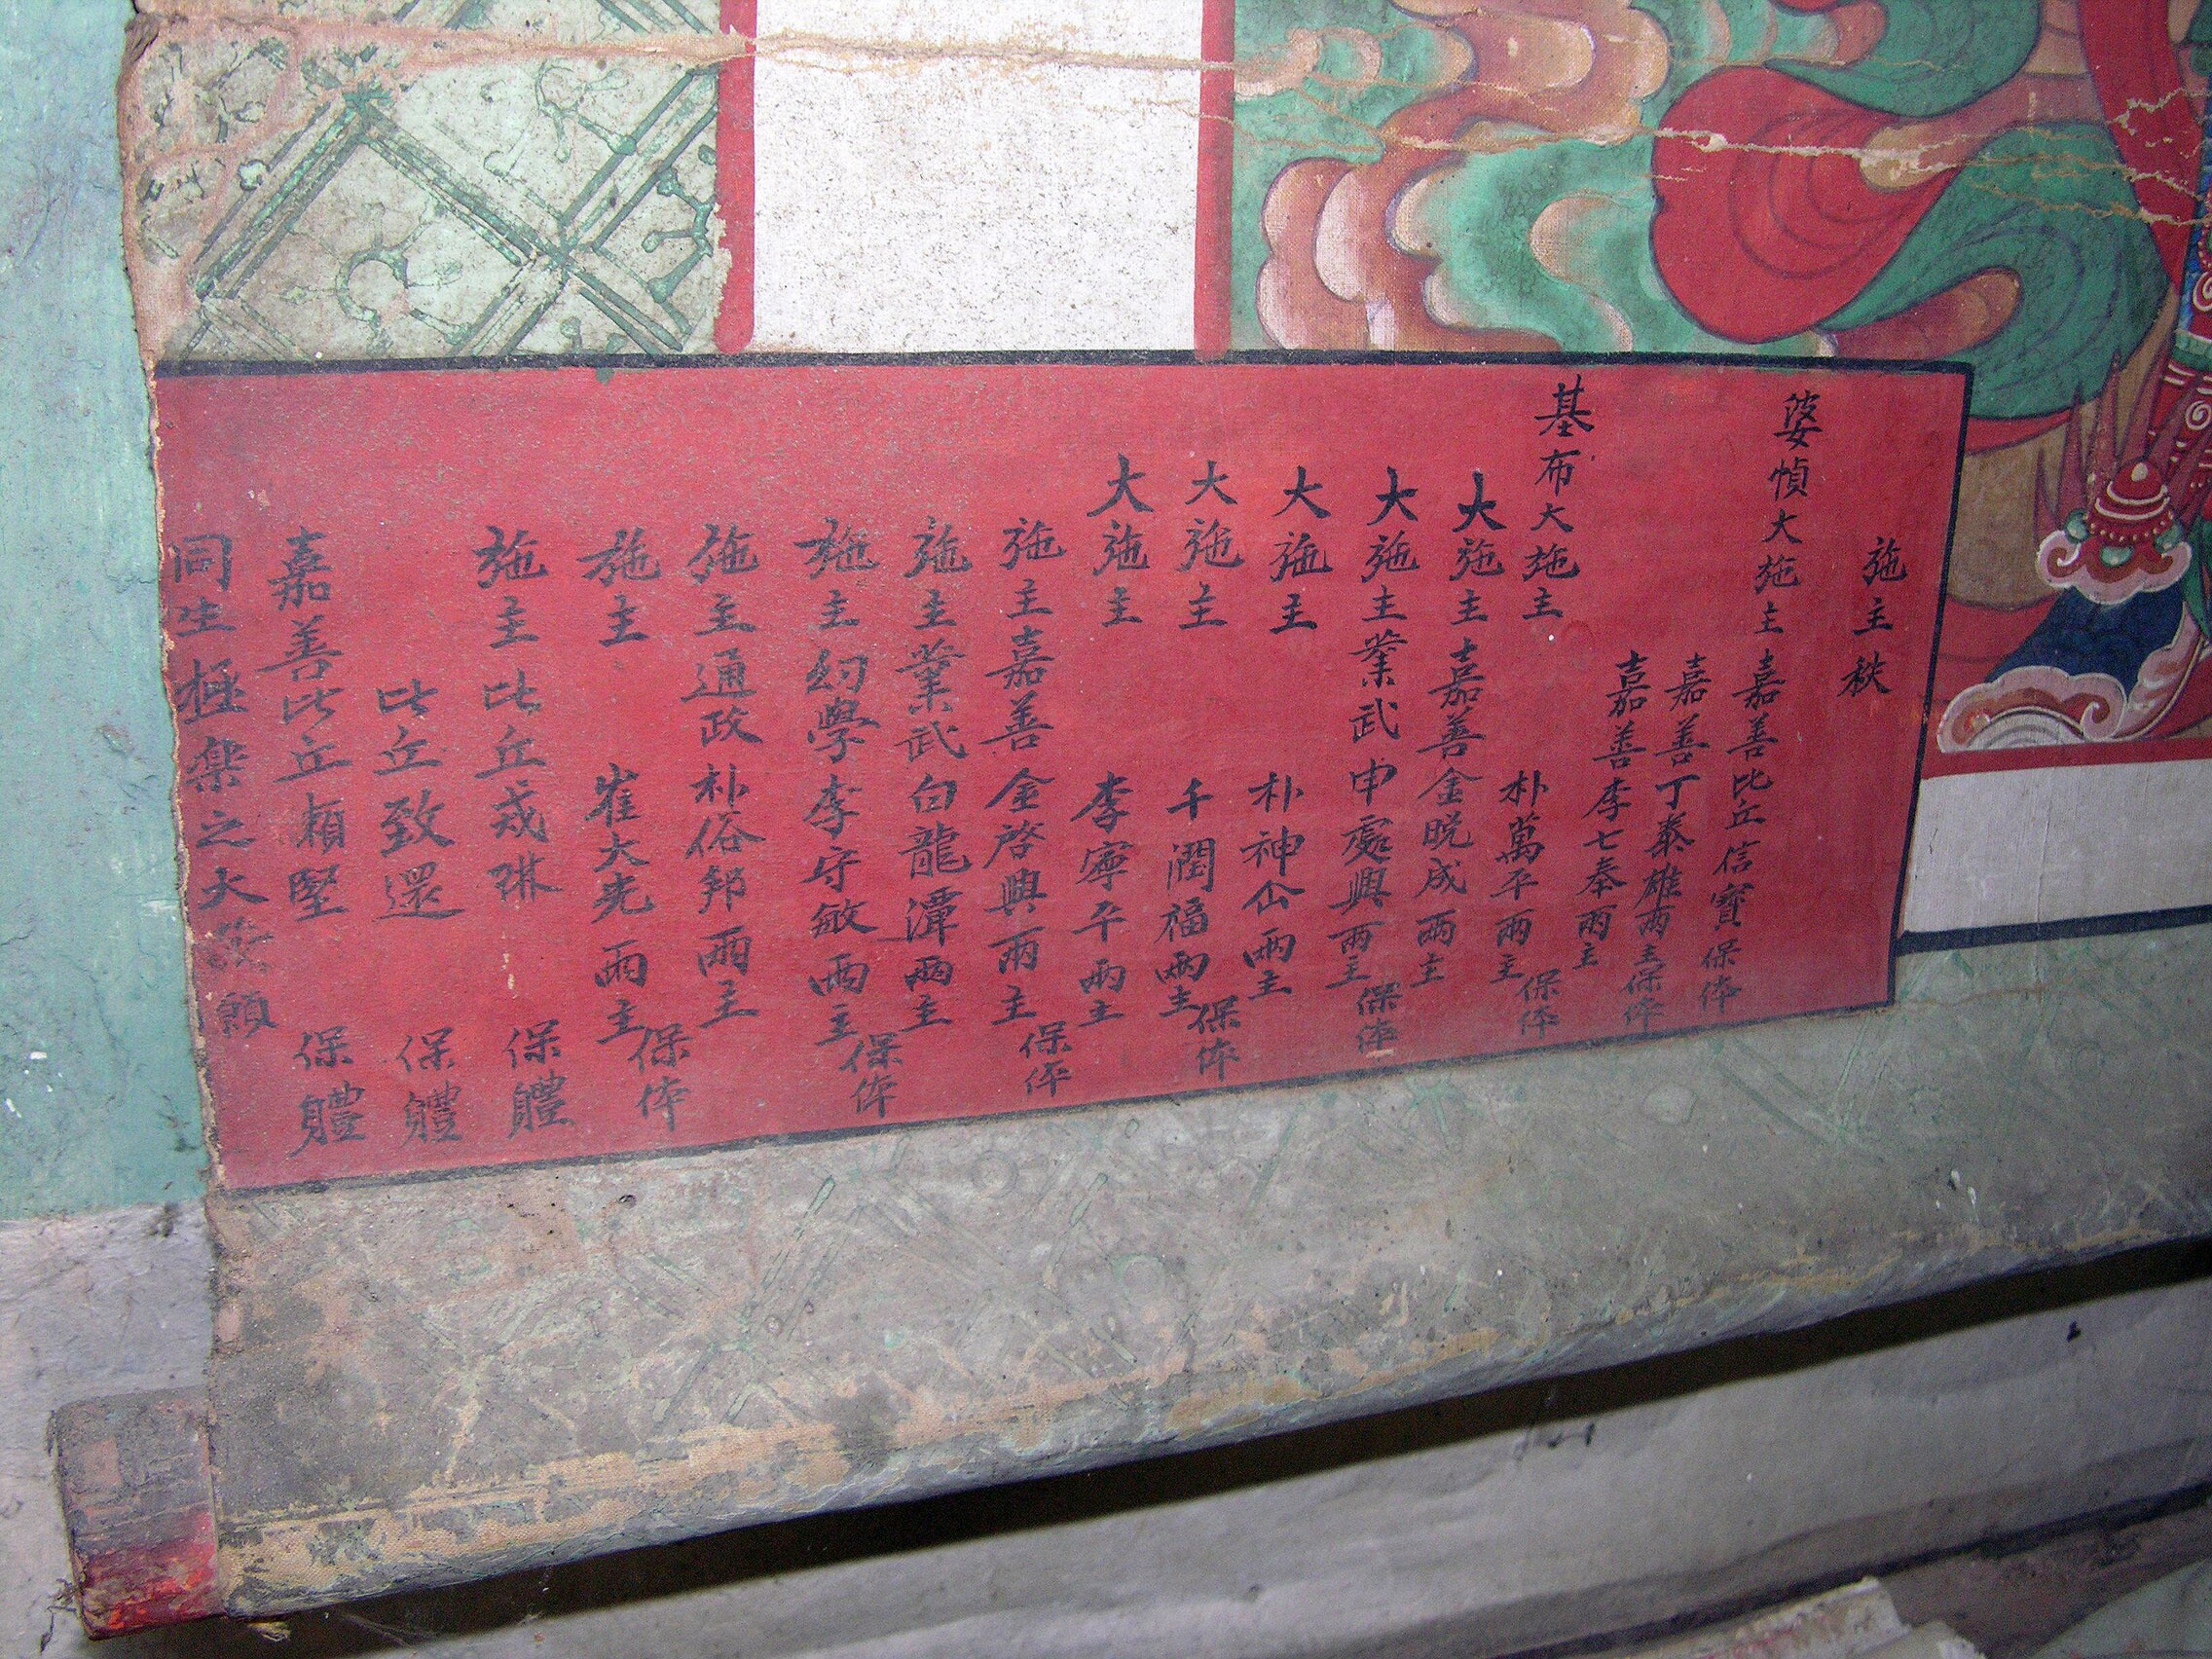 施主秩
婆幀大施主嘉善比丘信寶保体
嘉善丁泰雄两主保体
嘉善李七奉兩主
基布大施主朴萬平兩主保体
大施主嘉善金晩成两主
大施主業武申處興两主保体
大施主朴神仚兩主
大施主千潤福兩主保体
大施主李寧午兩主
施主嘉善金啓興兩主保体
施主業武白龍潭兩主
施主幼學李守敏兩主保体
施主通政朴俗邦兩主
施主崔大光兩主保体
施主比丘戎琳保軆
比丘致還保軆
嘉善比丘賴堅保軆
同生極楽之大發願